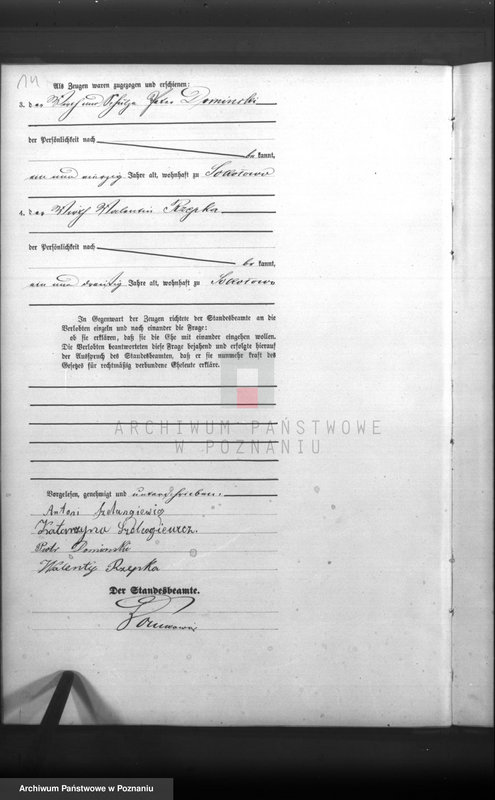 14
Als Zeugen waren zugezogen und erschienen:
3. der Wirth und Schulze Peter Dominski
der Persönlichkeit nach
be kannt,
ein und vierzig Jahre alt, wohnhaft zu Sokolowo
4. der Wirth Valentin Rzepka
der Persönlichkeit nach
be kannt,
ein und dreißig Jahre alt, wohnhaft zu Sokolowo
In Gegenwart der Zeugen richtete der Standesbeamte an die
Verlobten einzeln und nach einander die Frage:
ob sie erklären, daß sie die Ehe mit einander eingehen wollen.
Die Verlobten beantworteten diese Frage bejahend und erfolgte hierauf
der Ausspruch des Standesbeamten, daß er sie nunmehr kraft des
Gesetzes für rechtmäßig verbundene Eheleute erkläre.
ARCHIWUM PAŃSTWOWE
W POZNANIU
Vorgelesen, genehmigt und unterschrieben:
Antoni
Katarzyna
Piotr Dominski
Walenty Rzepka
Der Standesbeamte.
Archiwum Państwowe w Poznaniu